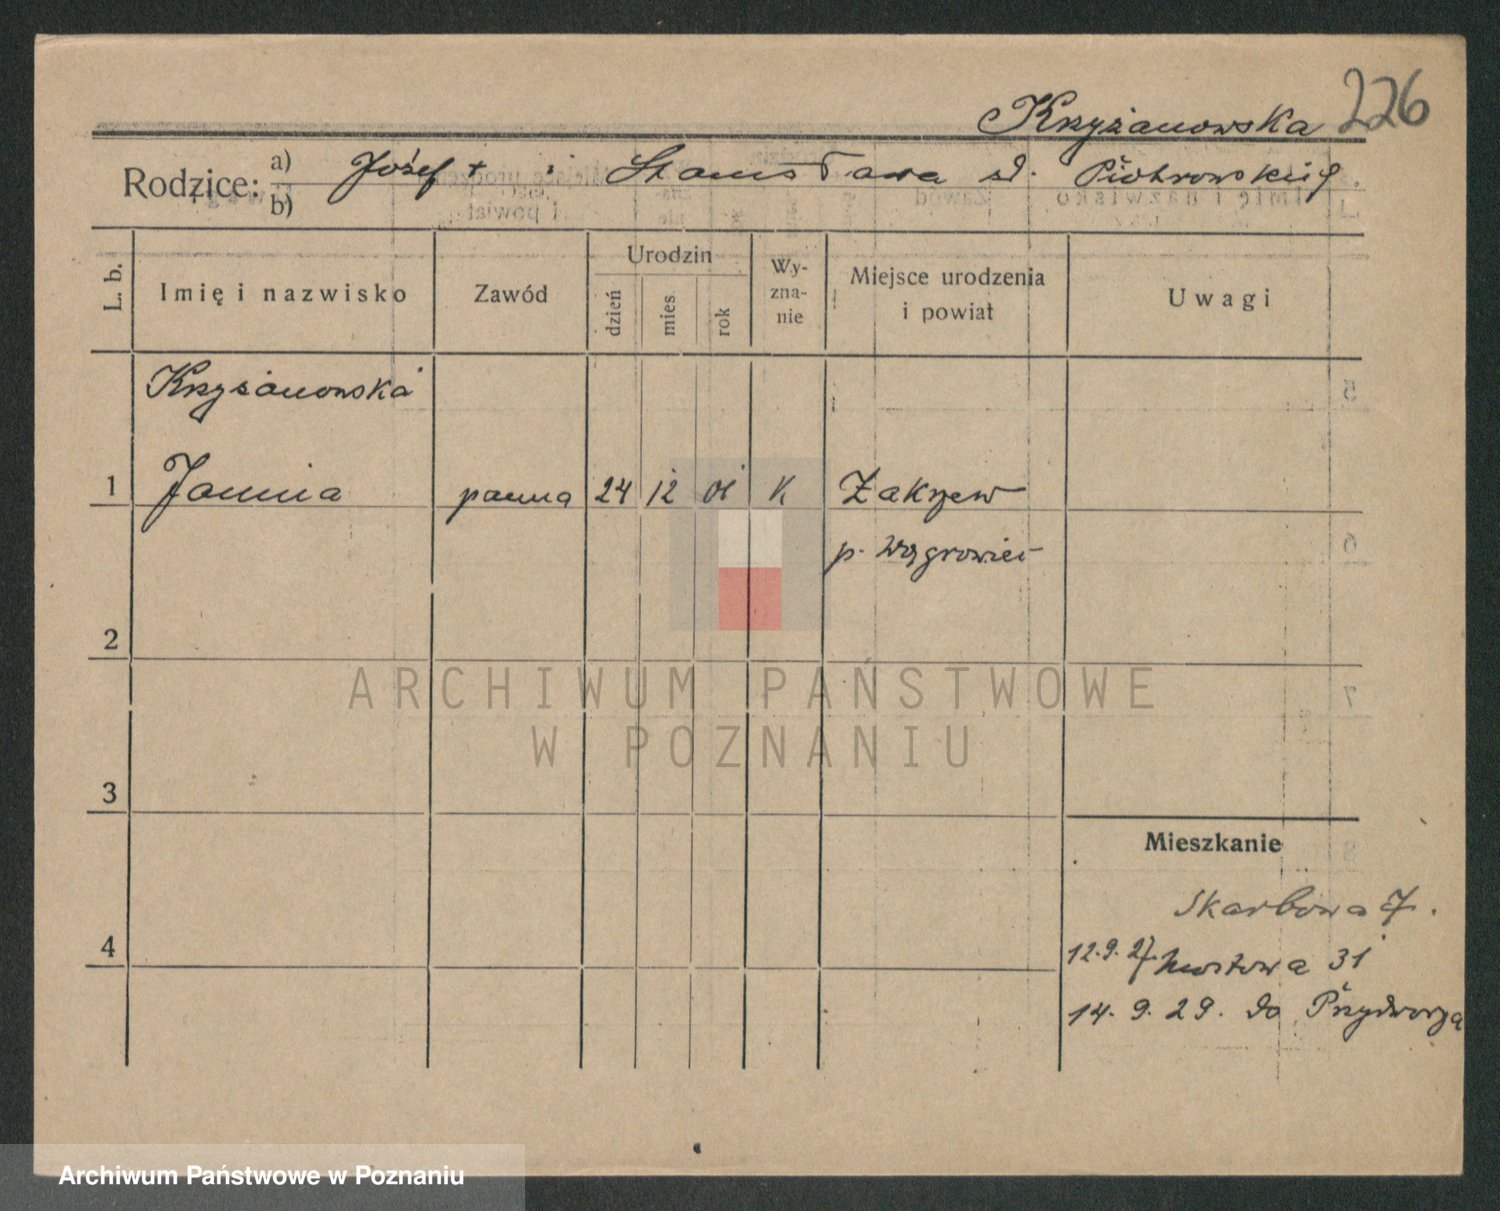 Krzyżanowska 226
Rodzice: a) Józef + i Stanisława d. Piotrowskich
b)
L. b.
Imię i nazwisko
Zawód
Urodzin
dzień
mies
rok
Wy-
zna-
nie
Miejsce urodzenia
i powiat
Uwagi
Krzyżanowska
1 Janina panna 24 12 01 K Zakrzew
p. Wągrowiec
2
3
Mieszkanie
Skarbowa 7.
4
12.9.27 Mostowa 31
14.9.29. do Przydworza
ARCHIWUM PAŃSTWOWE
W POZNANIU
Archiwum Państwowe w Poznaniu